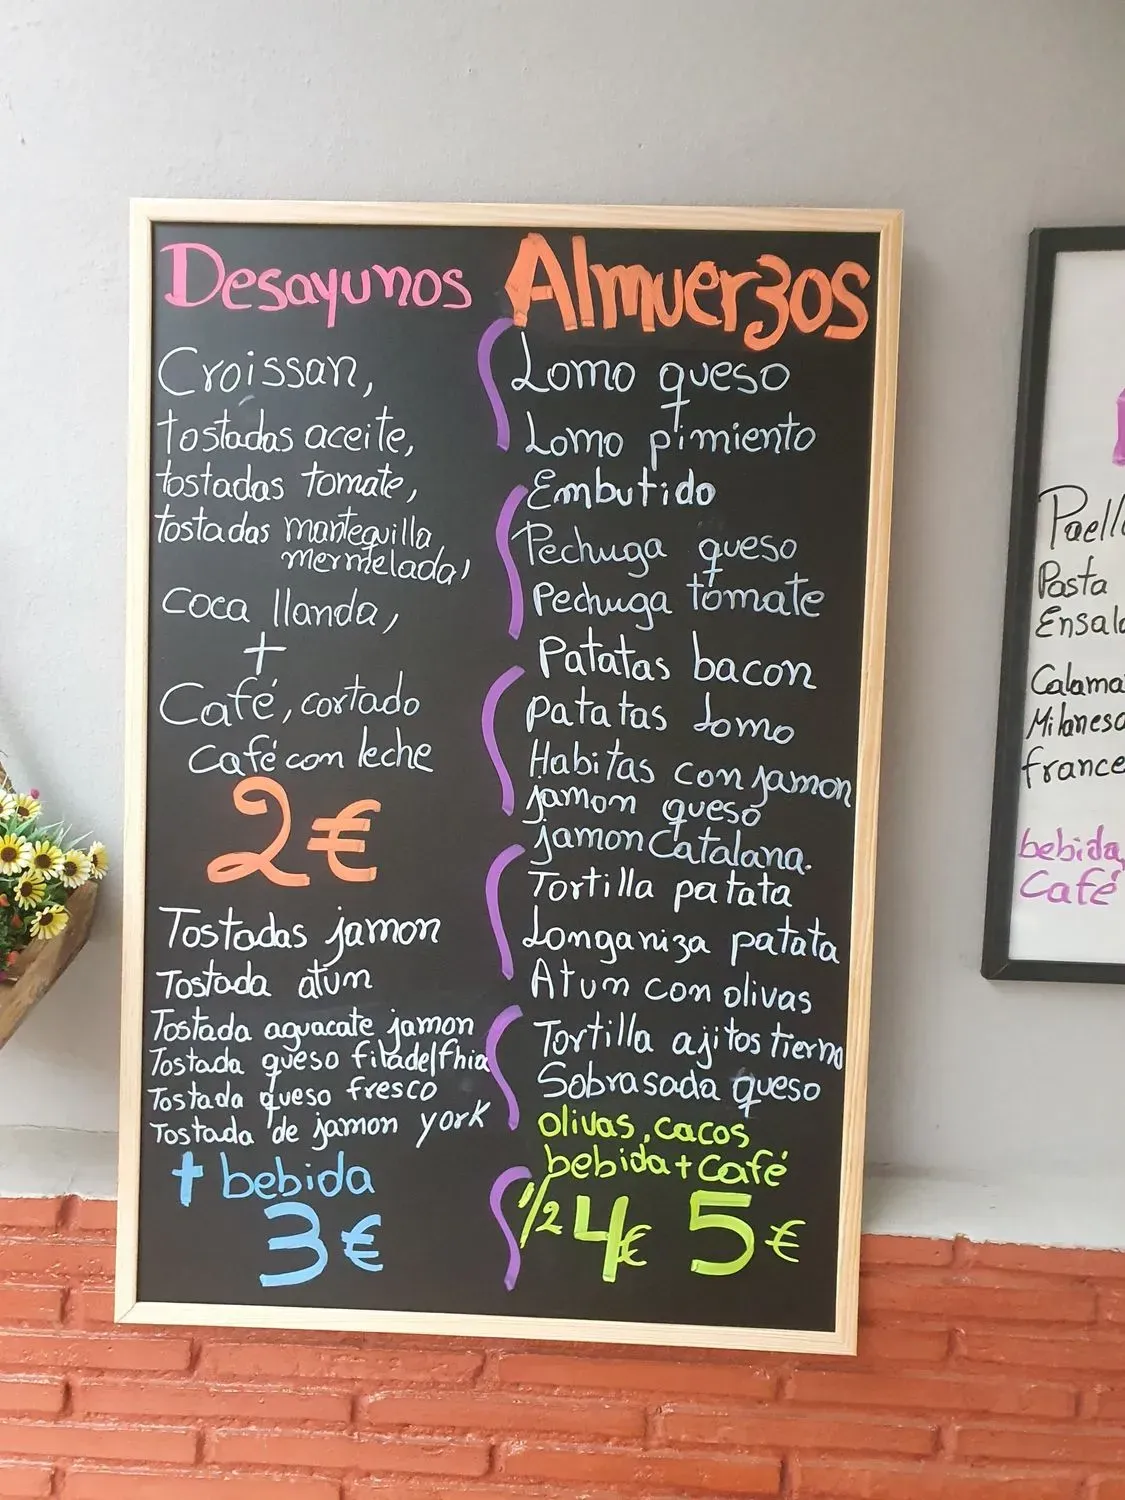 Desayunos
Croissan,
tostadas aceite,
tostadas tomate,
tostadas mantequilla
mermelada,
coca llanda,
+
Café, cortado
café con leche
2€
Tostadas jamon
Tostada atum
Tostada aguacate jamon
Tostada queso filadelfhia
Tostada queso fresco
Tostada de jamon york
+ bebida
3€
Almuerzos
Lomo queso
Lomo pimiento
Embutido
Pechuga queso
Pechuga tomate
Patatas bacon
patatas lomo
Habitas con jamon
jamon queso
jamon Catalana.
Tortilla patata
Longaniza patata
Atum con olivas
Tortilla ajitos tierno
Sobrasada queso
olivas, cacos
bebida + café
1/2 4€ 5€
Pasta
bebida,
Café